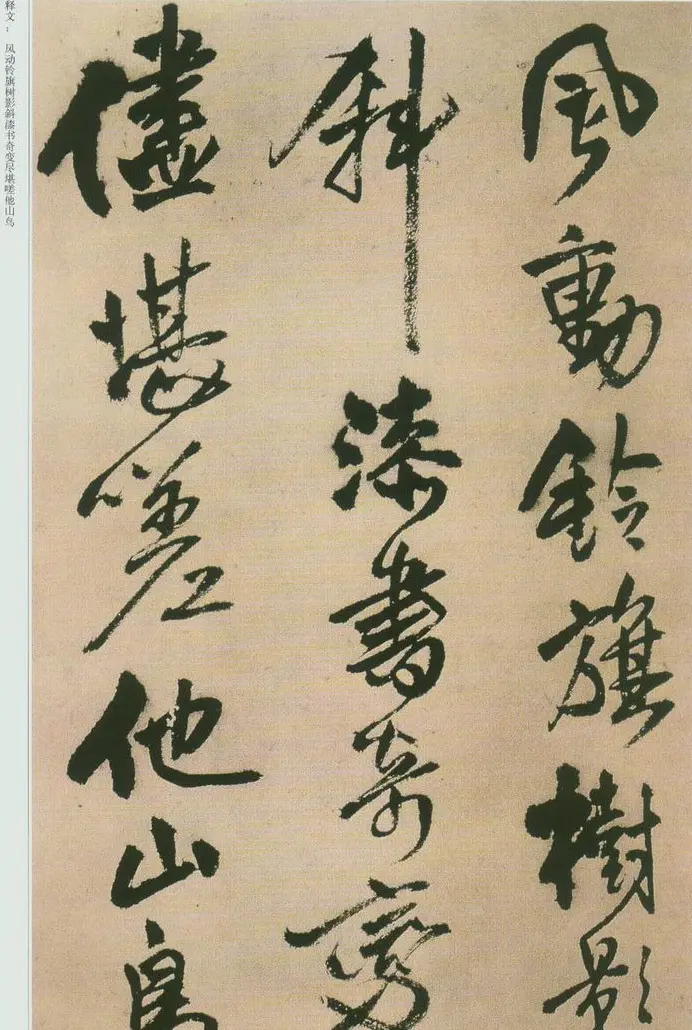 风动铃旗树影斜漆书奇变尽堪嗟他山鸟
風動鈴旗樹影
斜漆書奇變
儘堪嗟他山鳥
释文: